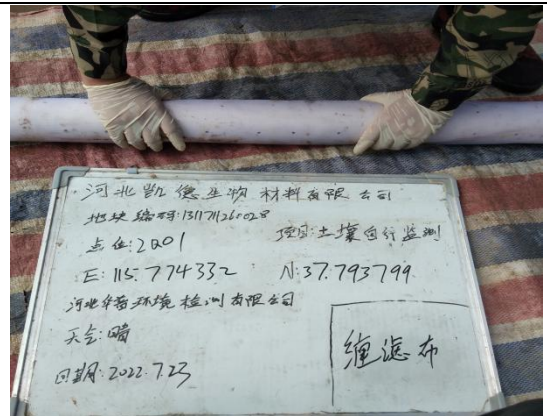 河北凯德生物材料有限公司
地块编码:1311711260028
点位:2Q01 项目:土壤自行监测
E: 115.774332 N:37.793799
河北华茜环境检测有限公司
天气:晴
日期:2022.7.23
缠滤布